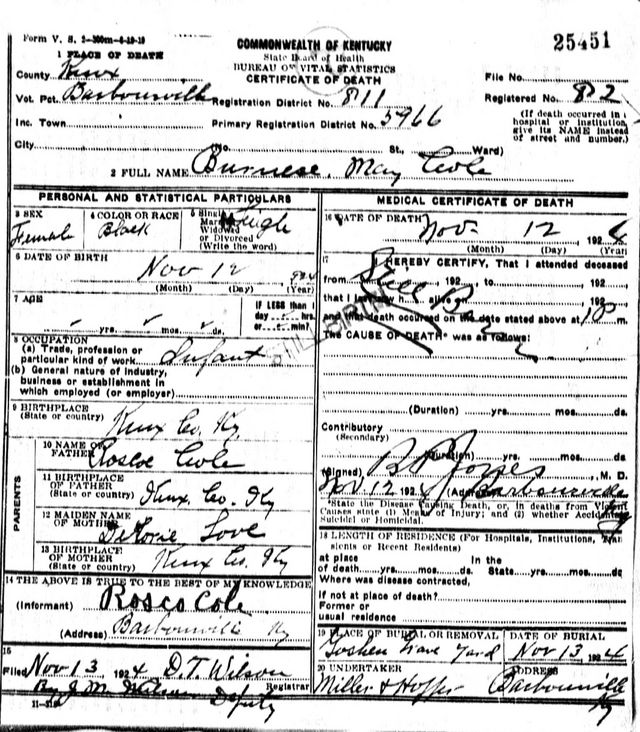 Form V. S. 2-300m-6-19-19
25451
COMMONWEALTH OF KENTUCKY
State Board of Health
BUREAU OF VITAL STATISTICS
CERTIFICATE OF DEATH
1 PLACE OF DEATH
County Knox
File No.
Vot. Pct. Barbourville Registration District No. 811
Registered No. 82
Inc. Town Primary Registration District No. 5966
(If death occurred in a hospital or institution, give its NAME instead of street and number.)
City No. St., Ward)
2 FULL NAME Burnese May Cole
PERSONAL AND STATISTICAL PARTICULARS
3 SEX
Female
4 COLOR OR RACE
Black
5 Single
Married
Widowed
or Divorced
(Write the word)
Single
6 DATE OF BIRTH
Nov 12 924
(Month) (Day) (Year)
7 AGE
yrs. mos. ds.
IF LESS than 1
day hrs.
or min.
8 OCCUPATION
(a) Trade, profession or
particular kind of work Infant
(b) General nature of industry,
business or establishment in
which employed (or employer)
9 BIRTHPLACE
(State or country) Knox Co. Ky
PARENTS
10 NAME OF
FATHER
Roscoe Cole
11 BIRTHPLACE
OF FATHER
(State or country) Knox Co. Ky
12 MAIDEN NAME
OF MOTHER
Love
13 BIRTHPLACE
OF MOTHER
(State or country) Knox Co. Ky
14 THE ABOVE IS TRUE TO THE BEST OF MY KNOWLEDGE
(Informant) Rosco Cole
(Address) Barbourville Ky
15
Filed Nov 13 1924 D.T. Wilson
Registrar
By J M Wilson Deputy
MEDICAL CERTIFICATE OF DEATH
16 DATE OF DEATH Nov. 12 1924
(Month) (Day) (Year)
17 I HEREBY CERTIFY, That I attended deceased
from , 192 , to , 192
that I last saw h alive on , 192
and that death occurred on the date stated above at m.
The CAUSE OF DEATH* was as follows:
Still Born
STILLBIRTH
(Duration) yrs. mos. ds.
Contributory
(Secondary)
(Duration) yrs. mos. ds.
(Signed) Jones, M. D.
Nov 12 1924 (Address) Barbourville Ky
*State the Disease Causing Death, or, in deaths from Violent
Causes state (1) Means of Injury; and (2) whether Accidental,
Suicidal or Homicidal.
18 LENGTH OF RESIDENCE (For Hospitals, Institutions, Transients or Recent Residents)
at place In the
of death yrs. mos. ds. State yrs. mos. ds.
Where was disease contracted,
If not at place of death?
Former or
usual residence
19 PLACE OF BURIAL OR REMOVAL
Goshen Grave Yard
DATE OF BURIAL
Nov 13 1924
20 UNDERTAKER
Miller & Hopper
ADDRESS
Barbourville
Ky